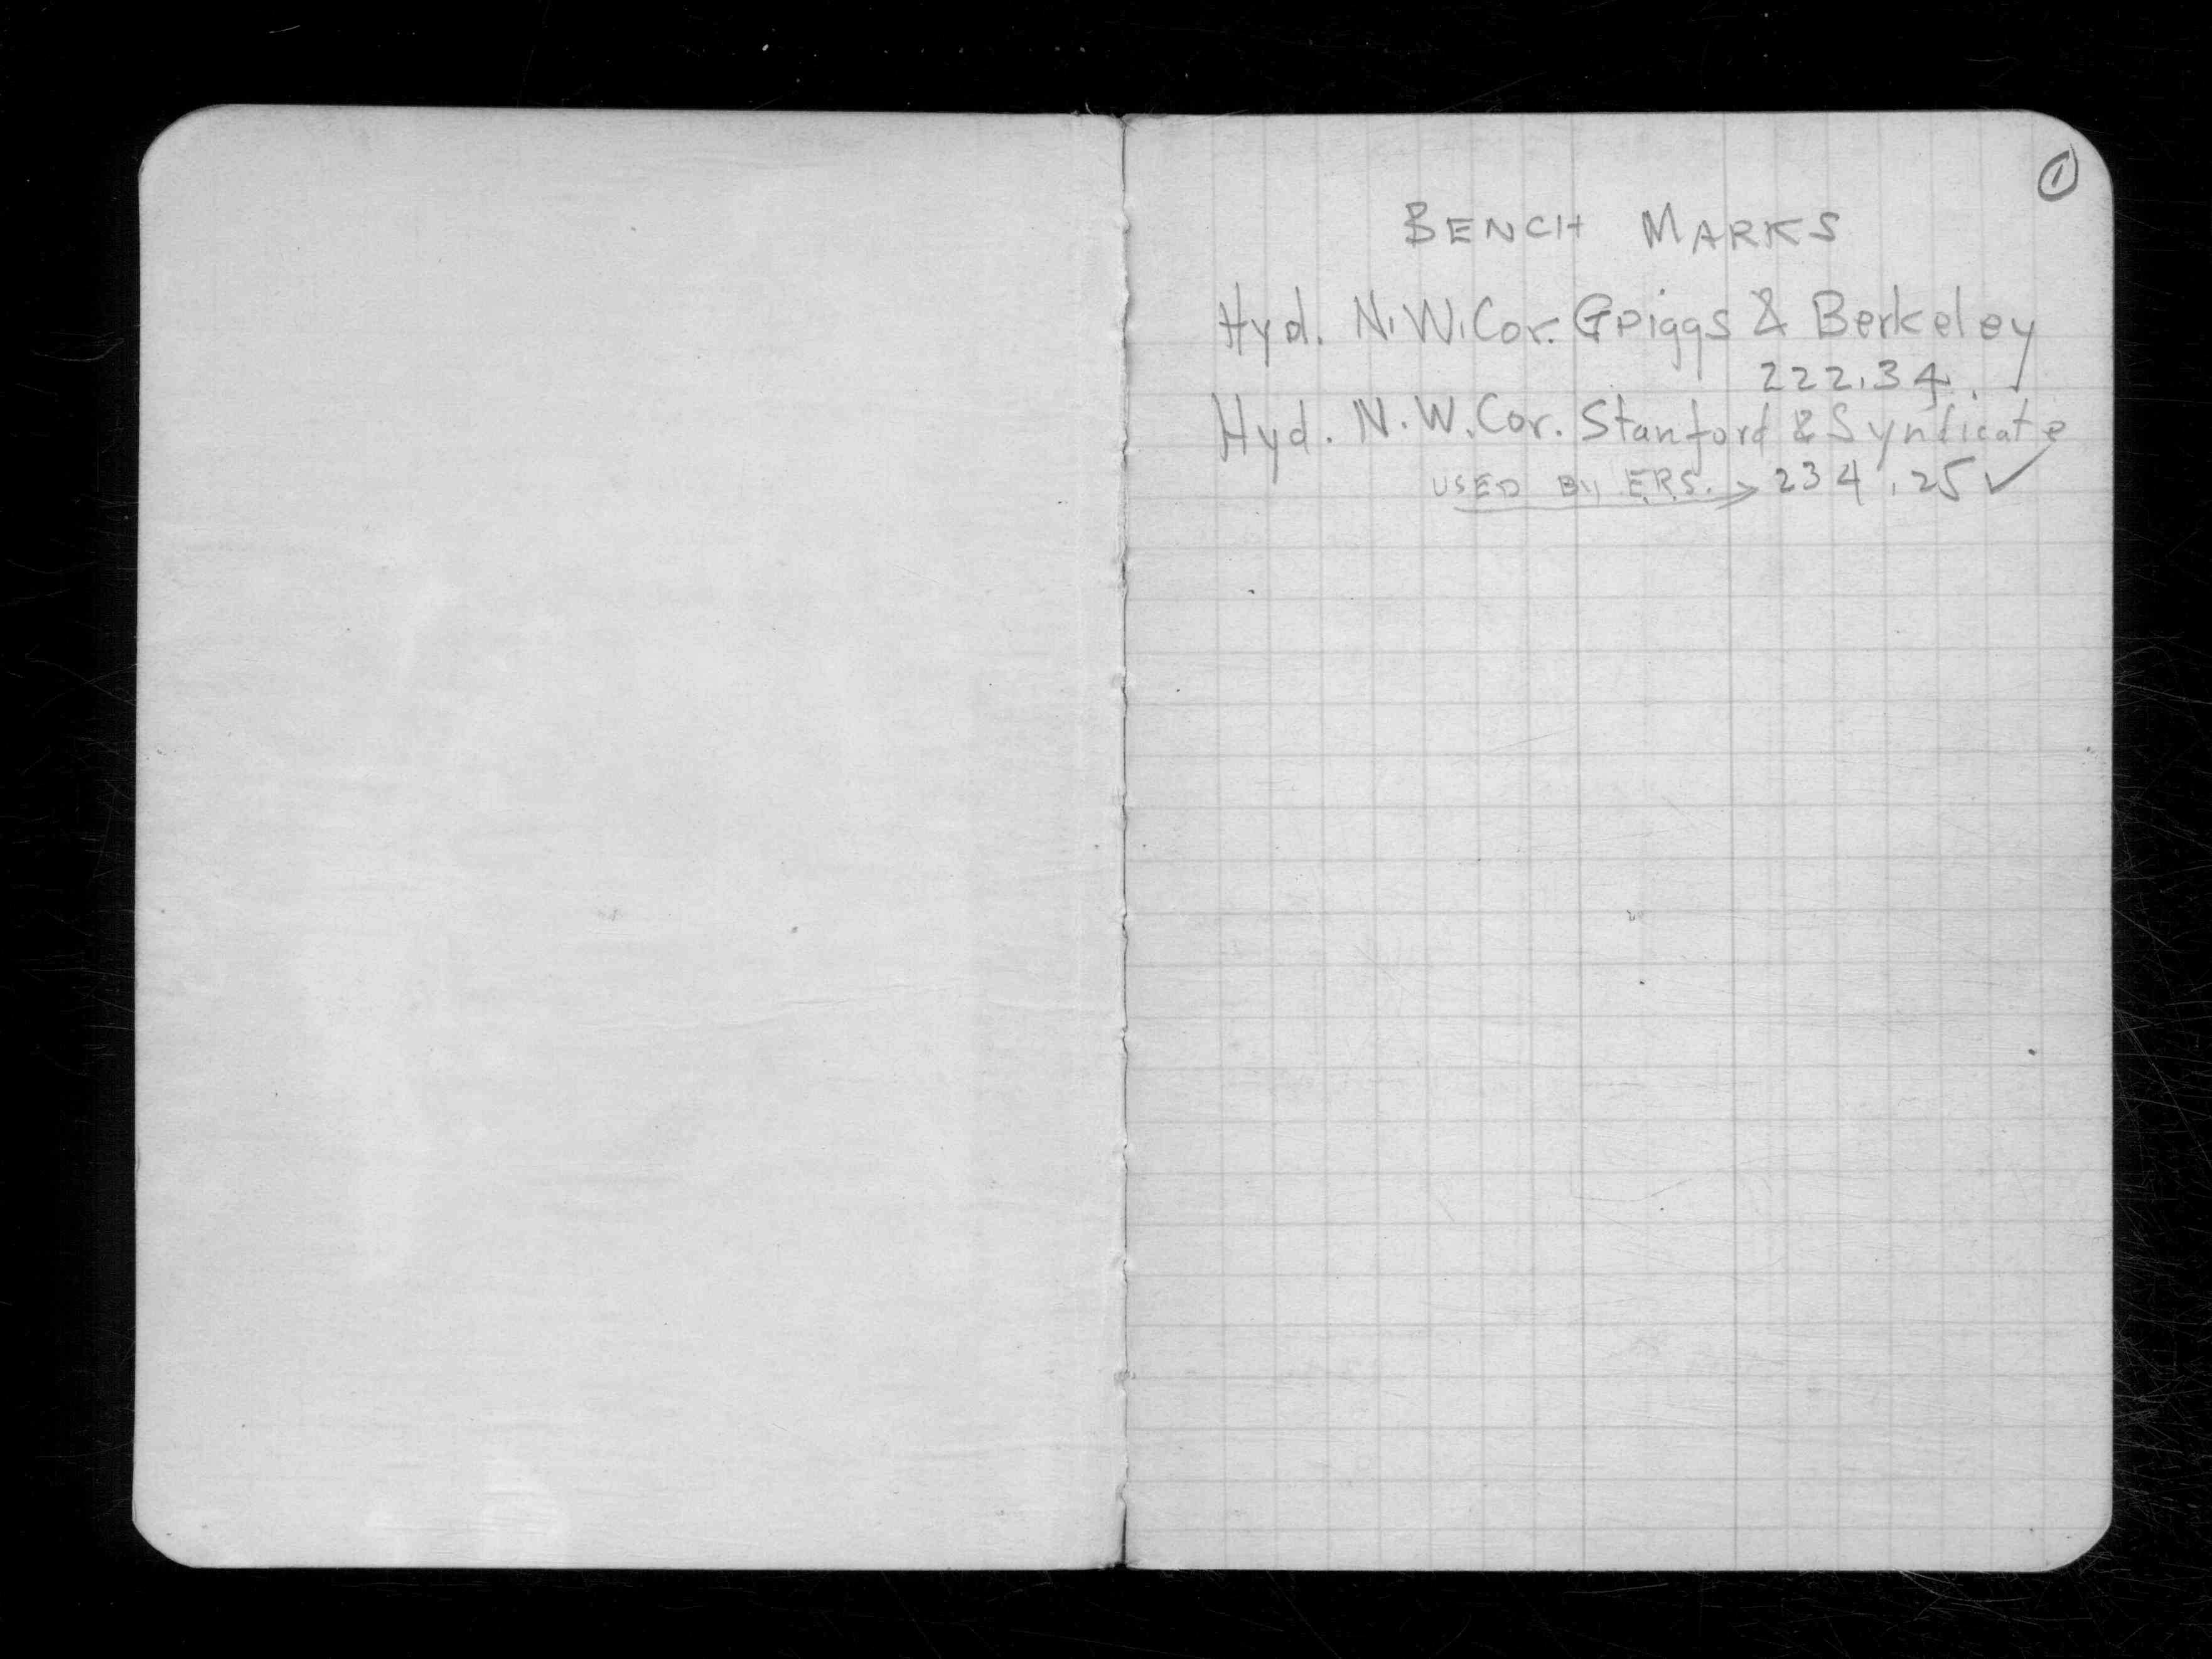 1
BENCH MARKS
Hyd. N.W. Cor. Griggs & Berkeley
222.34
Hyd. N.W. Cor. Stanford & Syndicate
USED BY E.R.S. → 234.25 ✓